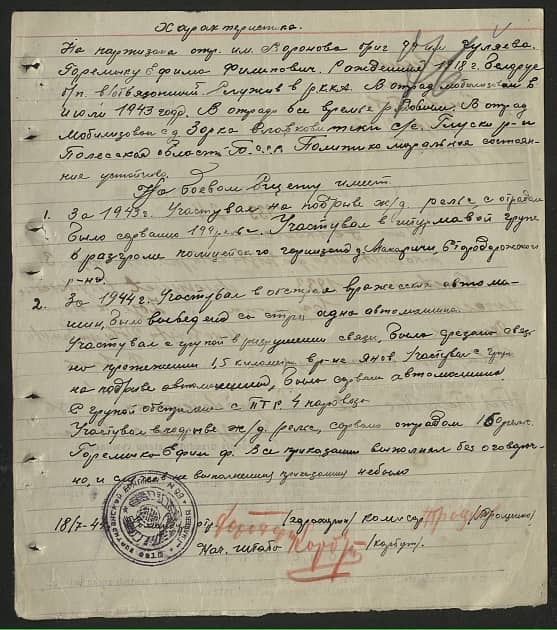 Характеристика.
На партизана отр. им. Воронова бриг 37 им Гуляева.
Горемыку Ефима Филипович. Рождения 1918 г. Белорус
б/п. в/обязанный Служив в РККА. В отряд мобилизован в
июли 1943 года. В отряде все время рядовым. В отряд
мобилизован с д. Зорка с/с. Глуски р-н
Полесской области Б.С.С.Р. Политико моральное состоя-
ние устойчиво.
На боевом Счету имеет
1. За 1943 г. Участувал на подрыве ж/д. рельс, с отрядом
было сорвано 199 рельс. Участувал в штурмавой групе
в разгроме полицейского горнизона д. Макаричи, Стородорожского
р-на.
2. За 1944 г. Участувал в обстреле вражеских автома-
шин, было выведено со строя одна автомашина.
Участувал с групой в разрушении связи, было срезано связи
на протяжении 1,5 километра в р-не Янов. Участувал с групой
на подрыве автомашины, было сорвана автомашина
С групой обстреляно с ПТР. 4 паровоза
Участувал в подрыве ж/д. рельс, сорвано отрядом 16 рельс.
Горемыко Ефим Ф. Все приказании выполнял без оговороч-
но, и случаев не выполнения приказания небыло
18/7-4 комисар
Нач. штаба /Корбут/.